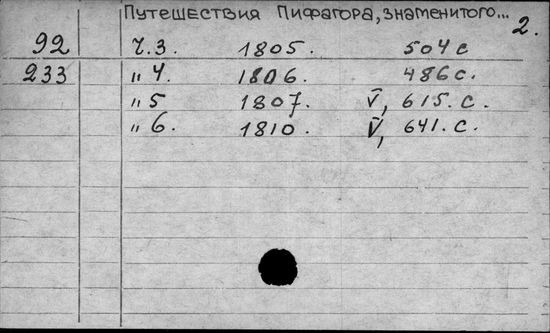 Путешествия Пифагора, знаменитого... 2.
92 Ч.3. 1805. 504 с
233 " 4. 1806. 486 с.
" 5 1807. V, 615. с.
" 6. 1810. V, 641. с.